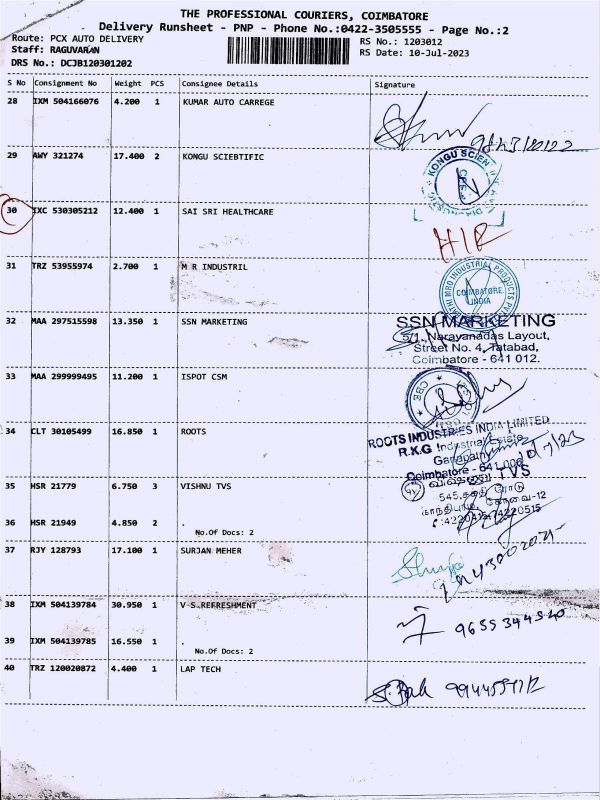 THE PROFESSIONAL COURIERS, COIMBATORE
Delivery Runsheet - PNP - Phone No.:0422-3505555 - Page No.:2
Route: PCX AUTO DELIVERY RS No.: 1203012
Staff: RAGUVARAN RS Date: 10-Jul-2023
DRS No.: DCJB120301202
S No Consignment No Weight PCS Consignee Details Signature
28 IXM 504166076 4.200 1 KUMAR AUTO CARREGE
29 AWY 321274 17.400 2 KONGU SCIEBTIFIC
KONGU SCIEN
30 IXC 530305212 12.400 1 SAI SRI HEALTHCARE
31 TRZ 53955974 2.700 1 M R INDUSTRIL
MRO INDUSTRIAL PRODUCTS
COIMBATORE
INDIA
32 MAA 297515598 13.350 1 SSN MARKETING
SSN MARKETING
5/1, Narayanadas Layout,
Street No. 4, Tatabad,
Coimbatore - 641 012.
33 MAA 299999495 11.200 1 ISPOT CSM
CBE
34 CLT 30105499 16.850 1 ROOTS
ROOTS INDUSTRIES INDIA LIMITED
R.K.G Industrial Estate
Ganapathy
Coimbatore - 641 006
10/7/23
35 HSR 21779 6.750 3 VISHNU TVS
TVS
36 HSR 21949 4.850 2
No.Of Docs: 2
37 RJY 128793 17.100 1 SURJAN MEHER
38 IXM 504139784 30.950 1 V S REFRESHMENT
9655344540
39 IXM 504139785 16.550 1
No.Of Docs: 2
40 TRZ 120020872 4.400 1 LAP TECH